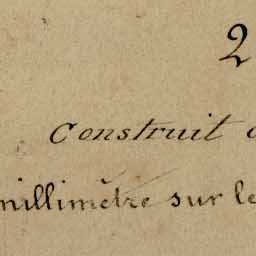 2
Construit
millimètre sur le